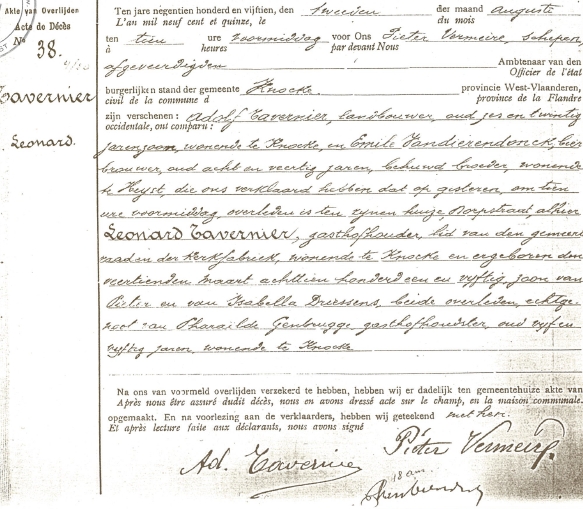 Akte van Overlijden
Acte de Décès
No 38.
Tavernier
Leonard.
Ten jare negentien honderd en vijftien, den tweeden der maand Auguste
L'an mil neuf cent et quinze, le du mois
ten tien ure voormiddag voor Ons Pieter Vermeire, schepen,
à heures par devant Nous
afgeveerdigden Ambtenaar van den
Officier de l'état
burgerlijken stand der gemeente Knocke provincie West-Vlaanderen,
civil de la commune d province de la Flandre
zijn verschenen: Adolf Tavernier, landbouwer, oud zes en twintig
occidentale, ont comparu:
jaren, zoon, wonende te Knocke, en Emile Vandierendonck, bier
brouwer, oud acht en veertig jaren, behuwd broeder, wonende
te Heyst, die ons verklaard hebben dat op gisteren, om tien
ure voormiddag, overleden is ten zynen huize Dorpstraat, alhier
Leonard Tavernier, gasthofhouder, lid van den gemeen
raad en der Kerkfabriek, wonende te Knocke en er geboren den
veertienden maart achttien honderd een en vyftig, zoon van
Pieter en van Isabella Driessens, beide overleden, echtge
noot van Pharaïlde Genbrugge gasthofhoudster, oud vyf en
vyftig jaren, wonende te Knocke
Na ons van voormeld overlijden verzekerd te hebben, hebben wij er dadelijk ten gemeentehuize akte van
Après nous être assuré dudit décès, nous en avons dressé acte sur le champ, en la maison communale.
opgemaakt. En na voorlezing aan de verklaarders, hebben wij geteekend met hen.
Et après lecture faite aux déclarants, nous avons signé
Ad. Tavernier Pieter Vermeire